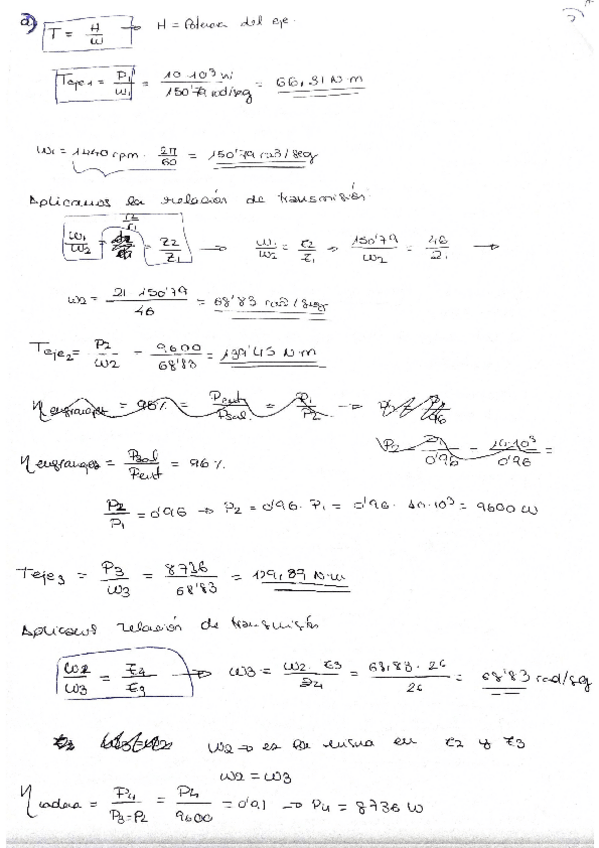 a) T = H/w → H = Potencia del eje.
Teje1 = P1/w1 = 10·10³ W/150'79 rad/seg = 66,31 N·m
w1 = 1440 rpm · 2π/60 = 150'79 rad/seg
Aplicamos la relación de transmisión
w1/w2 = r2/r1 = z2/z1 → w1/w2 = z2/z1 → 150'79/w2 = 46/21 →
w2 = 21·150'79/46 = 68'83 rad/seg
Teje2 = P2/w2 = 9600/68'83 = 139'45 N·m
η engranajes = 96% = Pent/Psal = P1/P2 →
P2 = P1/0'96 = 10·10³/0'96 =
η engranajes = Psal/Pent = 96%
P2/P1 = 0'96 → P2 = 0'96 · P1 = 0'96 · 10·10³ = 9600 W
Teje3 = P3/w3 = 8736/68'83 = 129,89 N·m
Aplicamos relación de transmisión
w2/w3 = z4/z3 → w3 = w2·z3/z4 = 68,83·26/26 = 68'83 rad/seg
w2 → es la misma en z2 y z3
w2 = w3
η cadena = P4/P3=P2 = P4/9600 = 0'91 → P4 = 8736 W